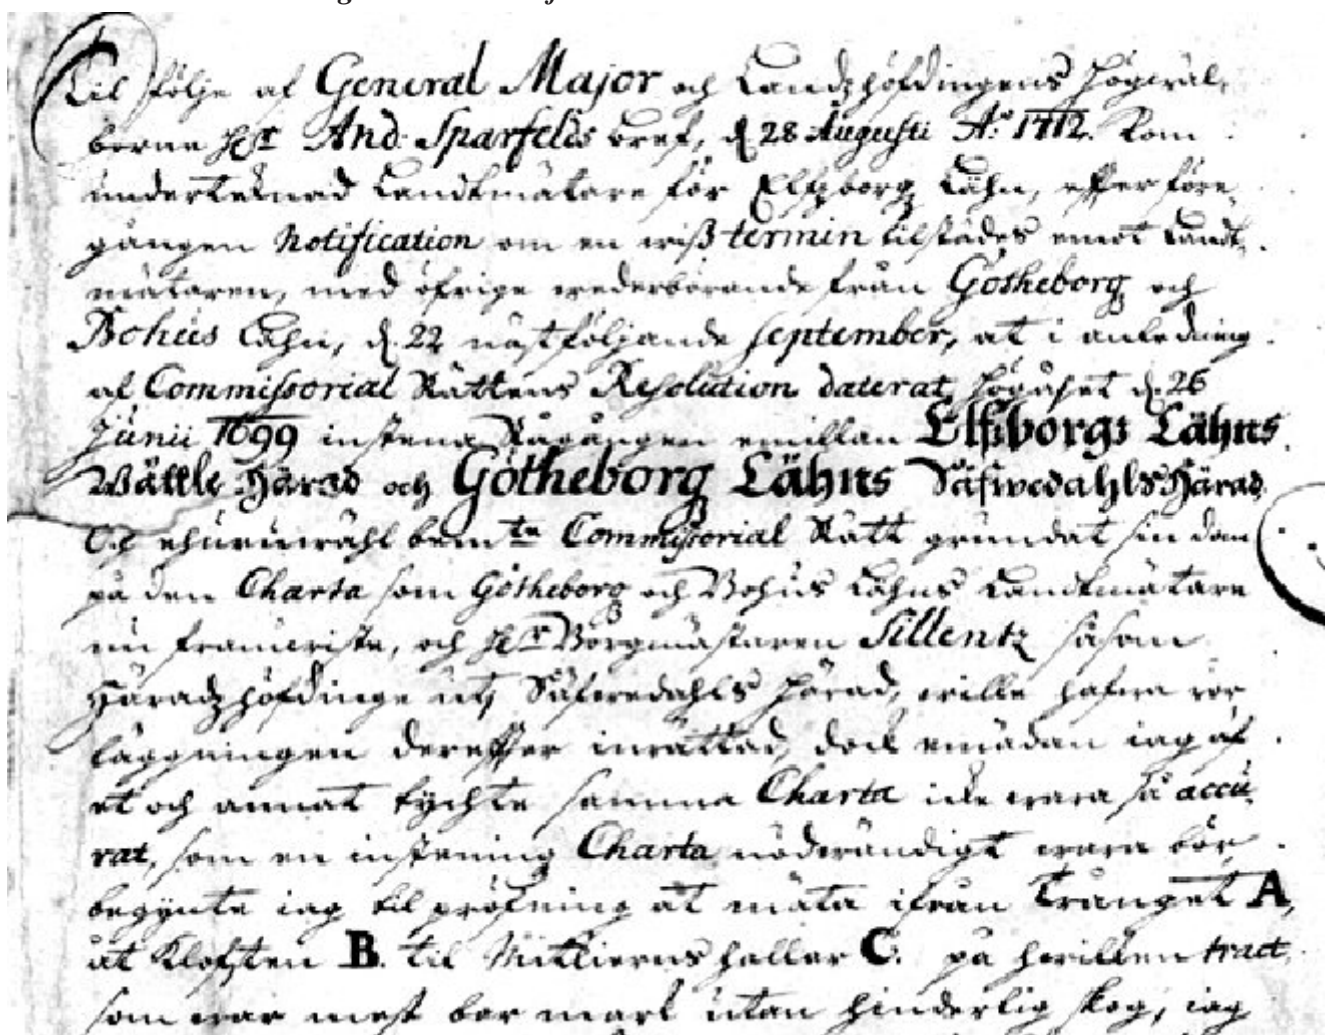 Til följe af General Major och Landzhöfdingens Högwäl,
borne Hr And. Sparfelds bref, d. 28 Augusti Ao 1712. kom
undertecknad Landtmätare för Elfzborgz Lähn, efter före,
gången notification om en wiß termin tilstädes emot Landt,
mätaren, med öfrige wederbörande från Götheborg och
Bohus Lähn, d. 22 näst följande September, at i anledning
af Commissorial Rättens Resolution daterat Högåhset d. 26
Junii 1699 instena Rågången emillan Elfsborgs Lähns
Wättle Härad och Götheborg Lähns Säfwedahls Härad.
Och ehuruwähl bemte Commissorial Rätt grundat sin dom
på den Charta som Götheborg och Bohus Lähns Landtmätare
nu framwiste, och Hr Borgmästaren Sillentz såsom
Häradzhöfdinge uti Säfwedahls Härad, wille hafwa rör
läggningen derefter inrättad, dock emädan iag af
et och annat tychte samma Charta icke wara så accu,
rat, som en instening Charta nödwändigt wara bör
begynte iag til pröfning at mäta ifrån Trånget A,
åt Klofsten B. til Mittiernshallar C. på hwilken tract,
som war mest bar mark utan hinderlig skog, iag